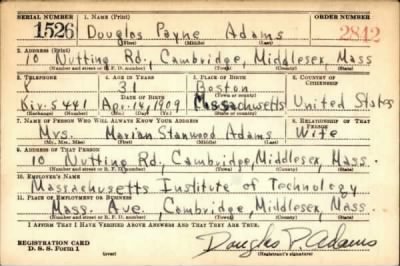 SERIAL NUMBER 1. NAME (Print) ORDER NUMBER
1526 Douglas Payne Adams 2842
(First) (Middle) (Last)
2. ADDRESS (Print)
10 Nutting Rd., Cambridge, Middlesex, Mass
(Number and street or R. F. D. number) (Town) (County) (State)
3. TELEPHONE 4. AGE IN YEARS 5. PLACE OF BIRTH 6. COUNTRY OF CITIZENSHIP
31 Boston
DATE OF BIRTH
Kir. 5441 Apr. 14, 1909 Massachusetts United States
(Exchange) (Number) (Mo.) (Day) (Yr.) (State or country)
7. NAME OF PERSON WHO WILL ALWAYS KNOW YOUR ADDRESS 8. RELATIONSHIP OF THAT PERSON
Mrs. Marian Stanwood Adams Wife
(Mr., Mrs., Miss) (First) (Middle) (Last)
9. ADDRESS OF THAT PERSON
10 Nutting Rd. Cambridge, Middlesex, Mass.
(Number and street or R. F. D. number) (Town) (County) (State)
10. EMPLOYER'S NAME
Massachusetts Institute of Technology
11. PLACE OF EMPLOYMENT OR BUSINESS
Mass. Ave., Cambridge, Middlesex, Mass
(Number and street or R. F. D. number) (Town) (County) (State)
I AFFIRM THAT I HAVE VERIFIED ABOVE ANSWERS AND THAT THEY ARE TRUE.
REGISTRATION CARD
D. S. S. Form 1
Douglas P. Adams
(Registrant's signature)